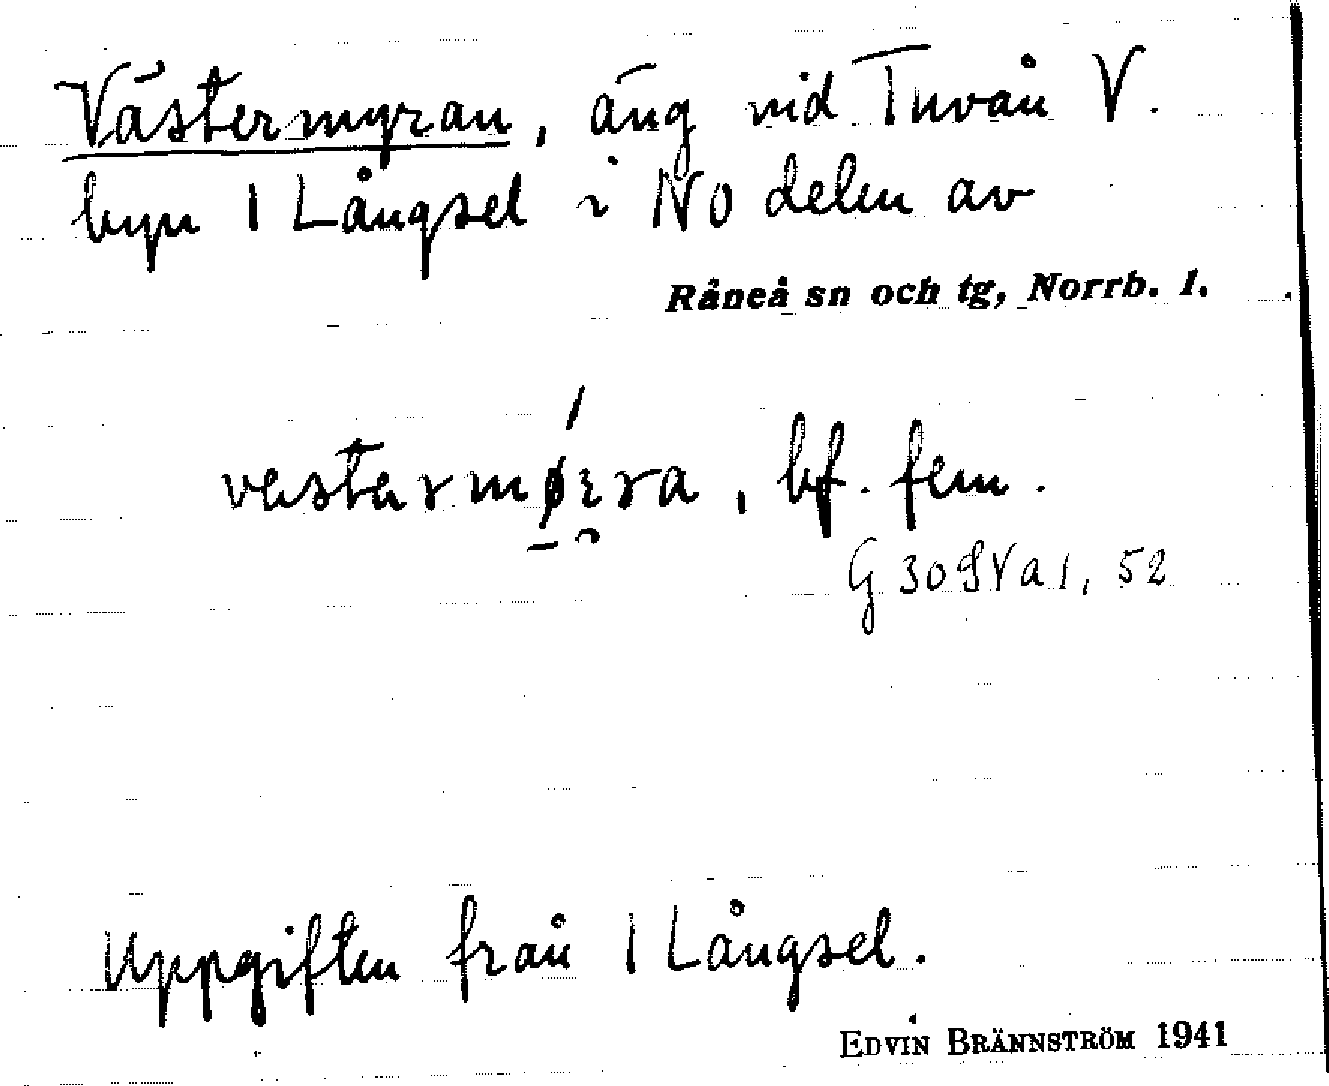 Västermyran, äng vid Tvån V.
byn 1 Långsel i NO delen av
Råneå sn och tg, Norrb. l.
bf. fem.
G 30 S Va 1, 52
Uppgiften från 1 Långsel.
EDVIN BRÄNNSTRÖM 1941